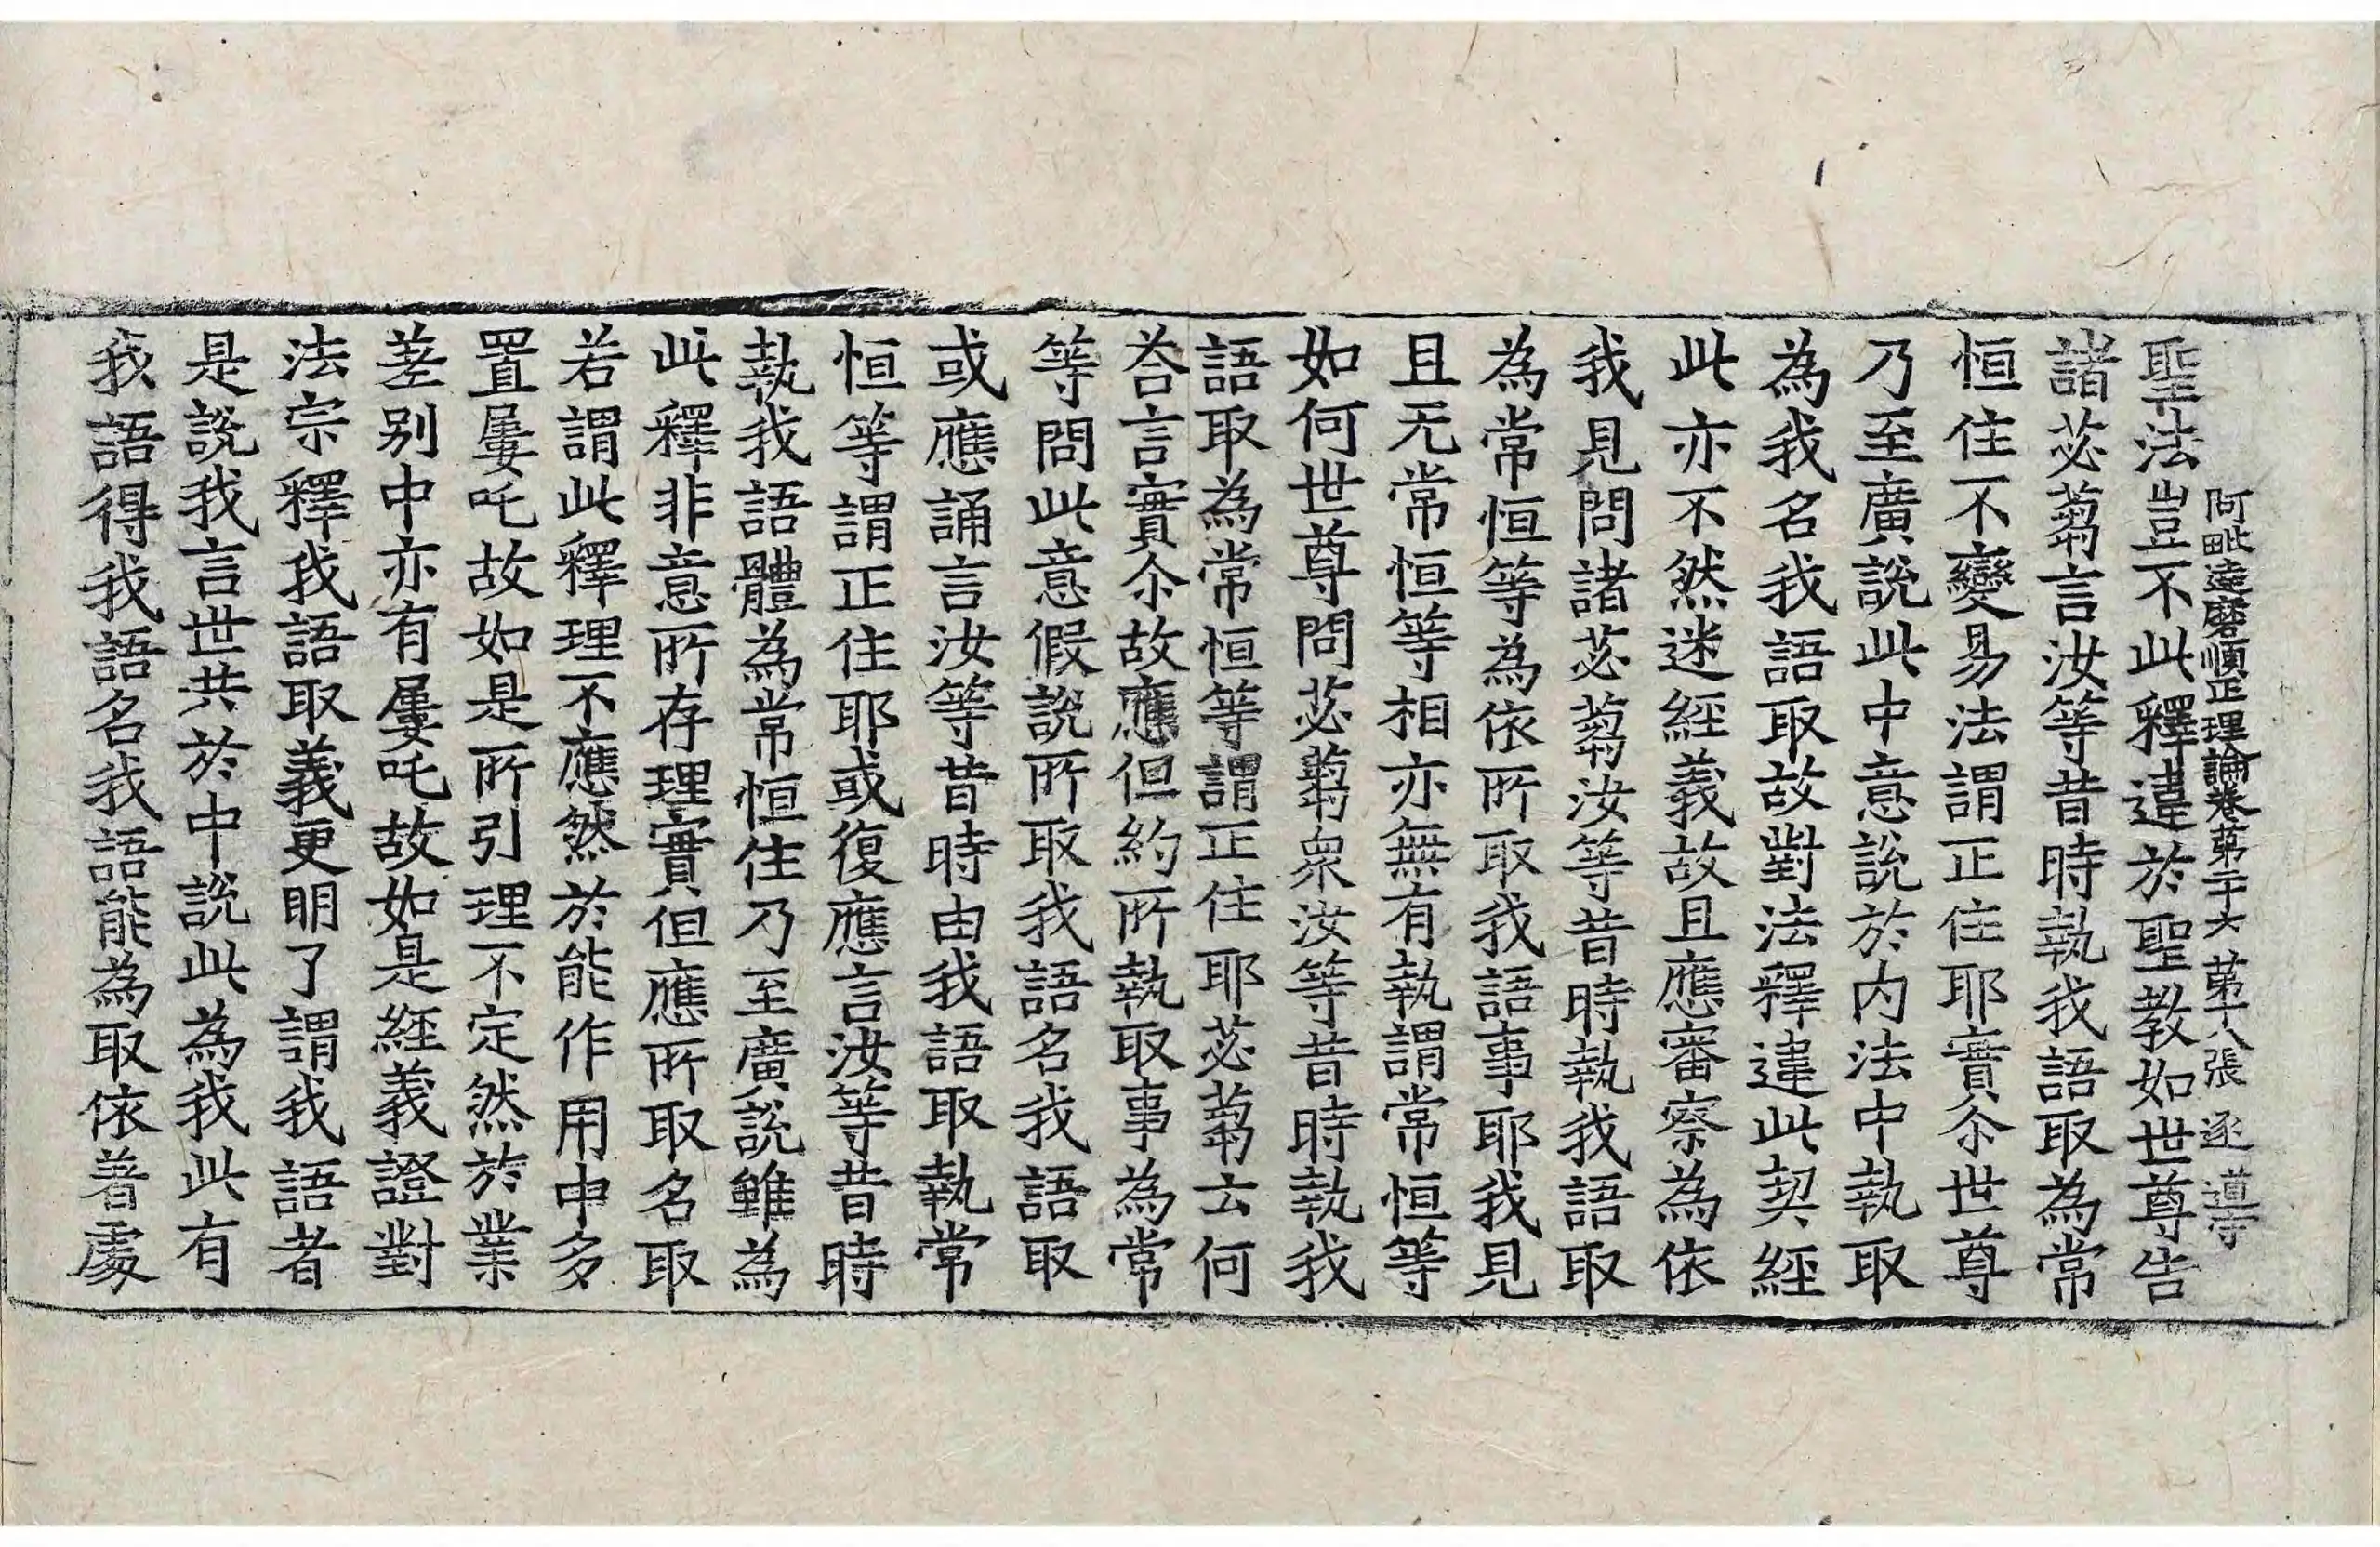 阿毗達磨順正理論卷第二十六 第十八張 逐 道守
聖法豈不此釋違於聖教如世尊告
諸苾蒭言汝等昔時執我語取為常
恒住不變易法謂正住耶實尒世尊
乃至廣說此中意說於内法中執取
為我名我語取故對法釋違此契經
此亦不然迷經義故且應審察為依
我見問諸苾蒭汝等昔時執我語取
為常恒等為依所取我語事耶我見
且无常恒等相亦無有執謂常恒等
如何世尊問苾蒭衆汝等昔時執我
語取為常恒等謂正住耶苾蒭云何
荅言實尒故應但約所執取事為常
等問此意假說所取我語名我語取
或應誦言汝等昔時由我語取執常
恒等謂正住耶或復應言汝等昔時
執我語體為常恒住乃至廣說雖為
此釋非意所存理實但應所取名取
若謂此釋理不應然於能作用中多
置屢吒故如是所引理不定然於業
差别中亦有屢吒故如是經義證對
法宗釋我語取義更明了謂我語者
是說我言世共於中說此為我此有
我語得我語名我語能為取依著處